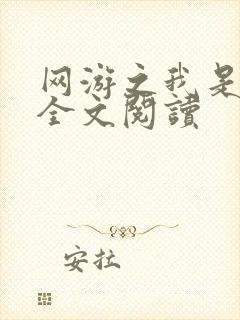 网游之我是
全文閱讀
安拉